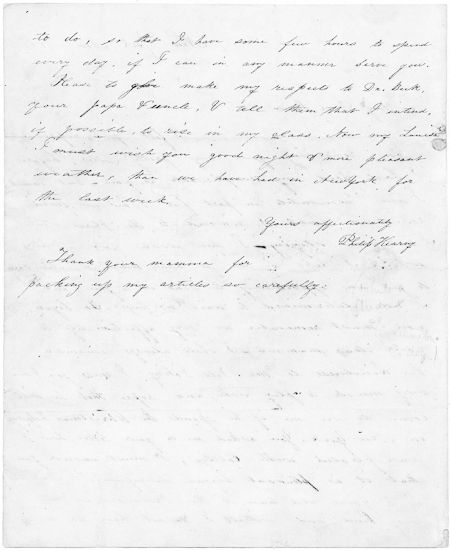 to do, so that I have some few hours to spend
every day, if I can in any manner serve you.
Please to give make my respects to Dr. Buck,
your papa & uncle, & tell them that I intend,
if possible, to rise in my class. Now my Louisa
I must wish you good night & more pleasant
weather, than we have had in New York for
the last week.
Yours affectionately
Philip Kearny
Thank your mamma for
packing up my articles so carefully.